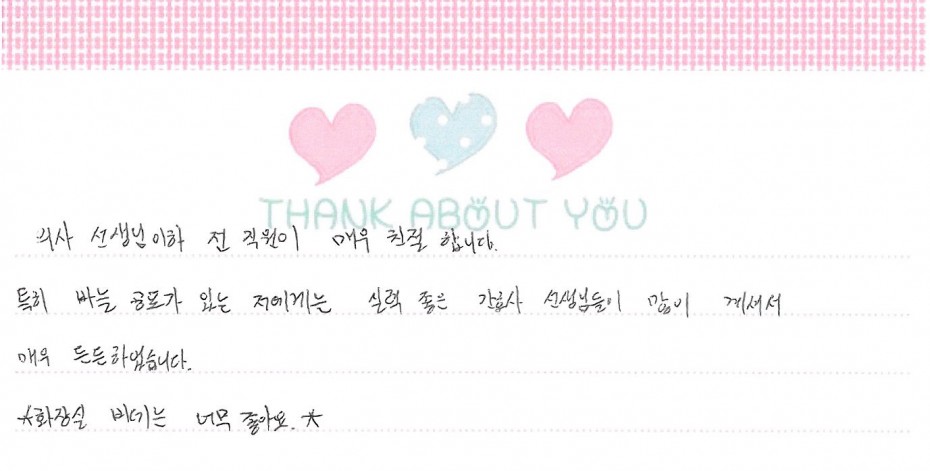 THANK ABOUT YOU
의사 선생님이하 전 직원이 매우 친절 합니다.
특히 바늘 공포가 있는 저에게는 실력 좋은 간호사 선생님들이 많이 계셔서
매우 든든하였습니다.
☆화장실 비데는 너무 좋아요.☆